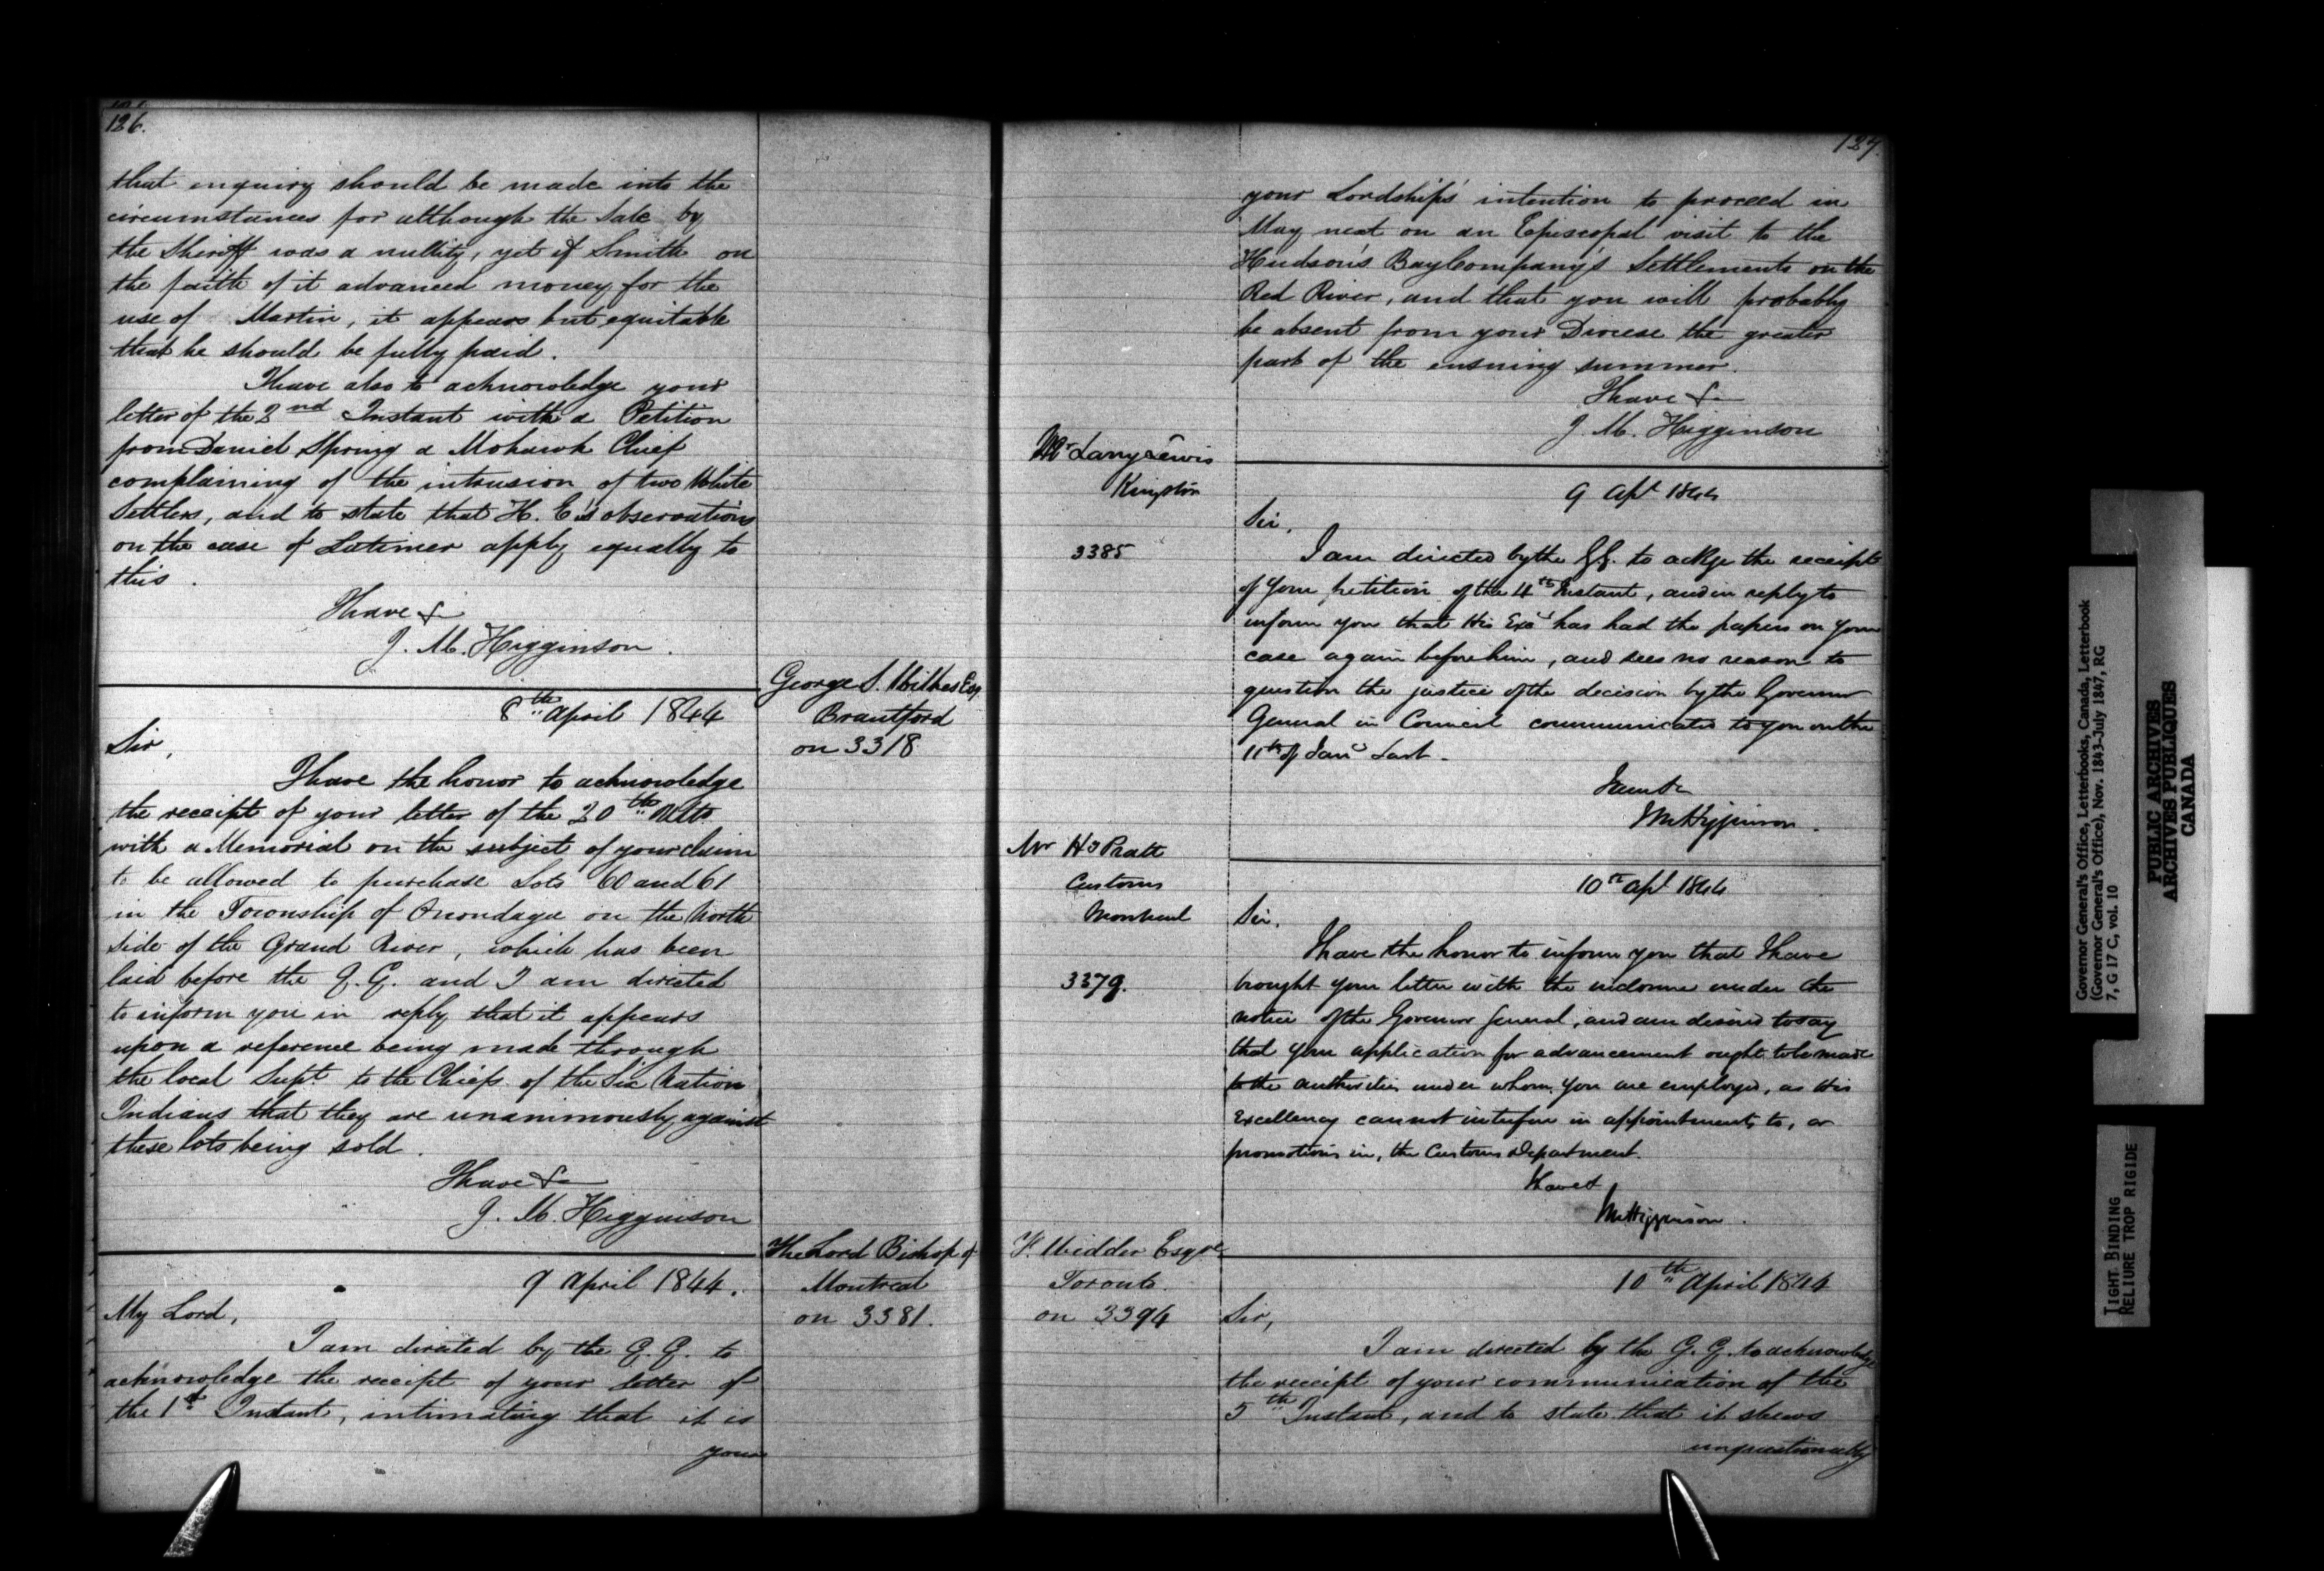 126.
that enquiry should be made into the
circumstances for although the Sale by
the Sheriff was a nullity, yet if Smith on
the faith of it advanced money for the
use of Martin, it appears but equitable
that he should be fully paid.
I have also to acknowledge your
letter of the 2nd Instant with a Petition
from Daniel Spring a Mohawk Chief
complaining of the intrusion of two White
Settlers, and to state that H. E's observations
on the case of Latimer apply equally to
this.
I have &c
J. M. Higginson.
George S. Wilkes Esq
Brantford
on 3318
8th April 1844
Sir,
I have the honor to acknowledge
the receipt of your letter of the 20th Ulto
with a Memorial on the subject of your claim
to be allowed to purchase Lots 60 and 61
in the Township of Onondaga on the North
side of the Grand River, which has been
laid before the G. G. and I am directed
to inform you in reply that it appears
upon a reference being made through
the local Supt. to the Chiefs of the Six Nation
Indians that they are unanimously against
these lots being sold.
I have &c
J. M. Higginson
The Lord Bishop of
Montreal
on 3381.
9 April 1844.
My Lord,
I am directed by the G. G. to
acknowledge the receipt of your letter of
the 1st Instant, intimating that it is
your
127.
your Lordship's intention to proceed in
May next on an Episcopal visit to the
Hudson's Bay Company's Settlements on the
Red River, and that you will probably
be absent from your Diocese the greater
part of the ensuing summer.
I have &c
J. M. Higginson
Mr Larry Lewis
Kingston
3385
9 Apl 1844
Sir,
I am directed by the G.G. to ackge the receipt
of your petition of the 4th Instant, and in reply to
inform you that His Excy has had the papers on your
case again before him, and sees no reason to
question the justice of the decision by the Governor
General in Council communicated to you on the
11th of Jany Last.
I am &c
JMHigginson.
Mr Hy Pratt
Customs
Montreal
3379.
10th Apl 1844
Sir,
I have the honor to inform you that I have
brought your letter with the inclosure under the
notice of the Governor General, and am desired to say
that your application for advancement ought to be made
to the authorities under whom you are employed, as His
Excellency cannot interfere in appointments to, or
promotions in, the Customs Department.
I have &
JMHigginson.
F. Widder Esqre
Toronto.
on 3394
10th April 1844
Sir,
I am directed by the G. G. to acknowledge
the receipt of your communication of the
5th Instant, and to state that it shews
unquestionably
Governor General's Office, Letterbooks, Canada, Letterbook
(Governor General's Office), Nov. 1843-July 1847, RG
7, G 17 C, vol. 10
PUBLIC ARCHIVES
ARCHIVES PUBLIQUES
CANADA
TIGHT BINDING
RELIURE TROP RIGIDE